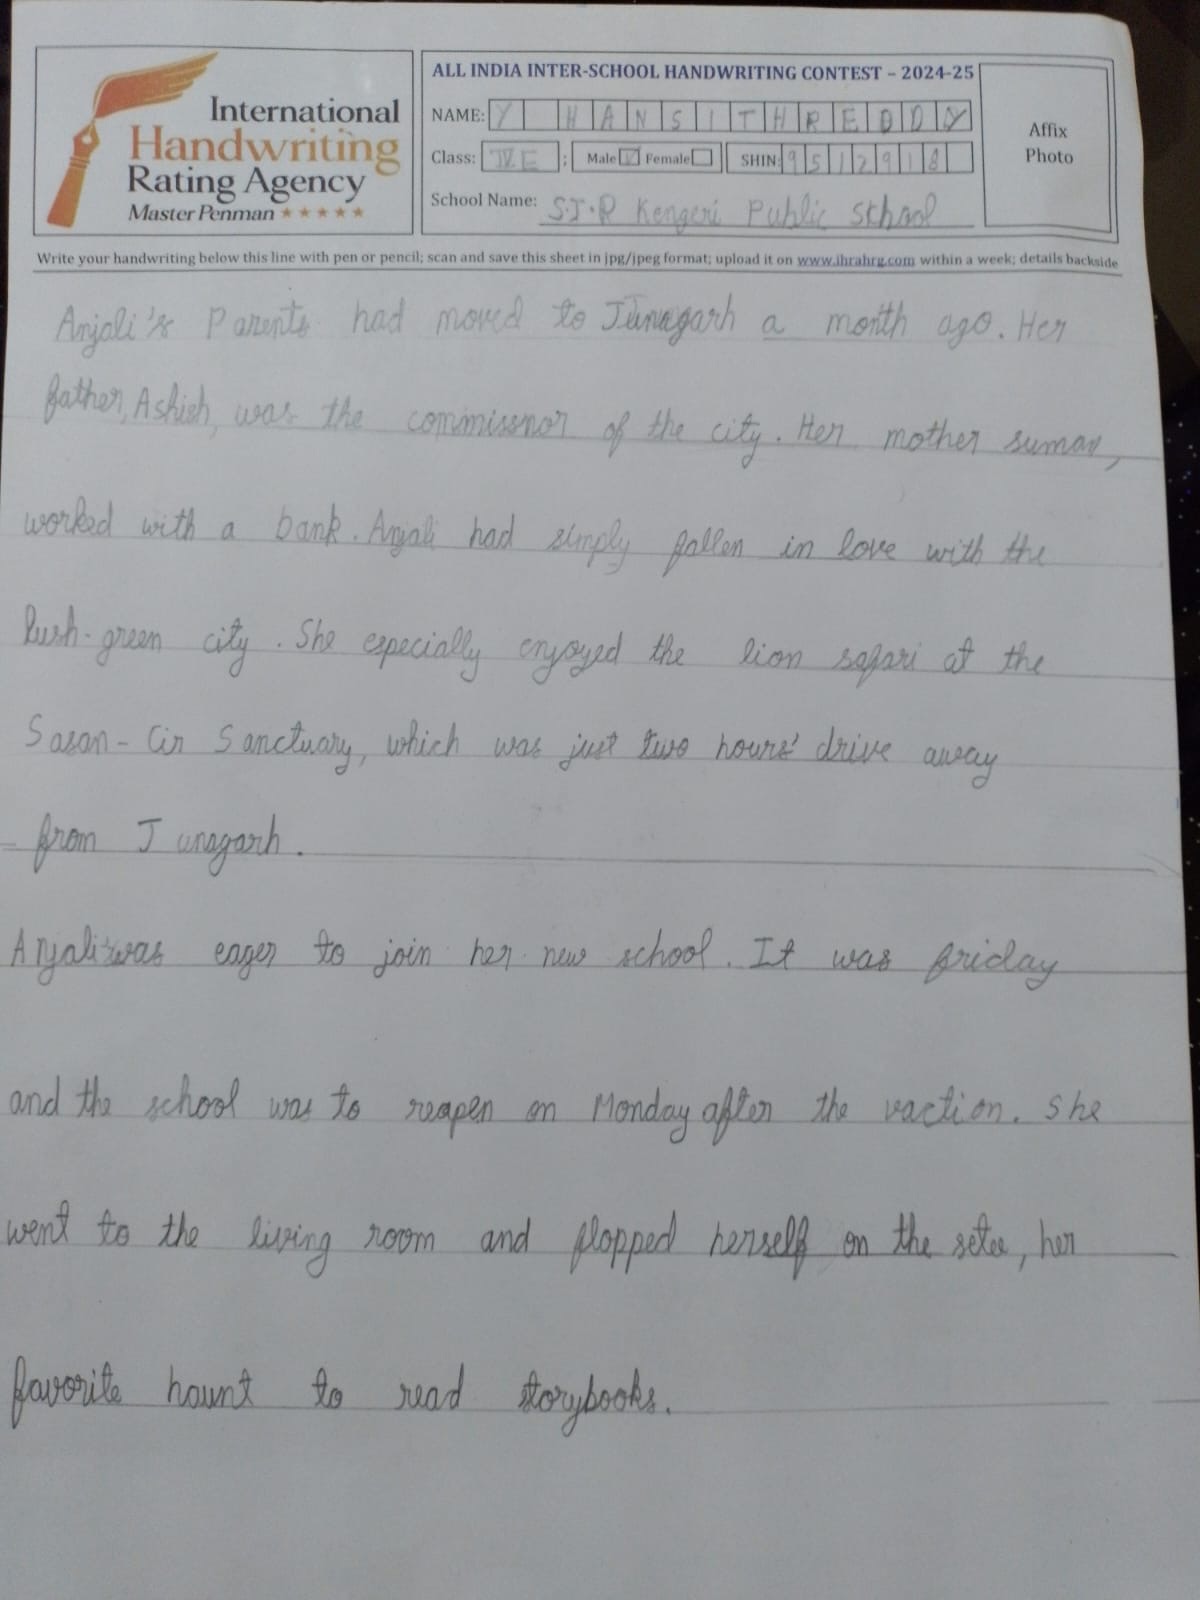 International
Handwriting
Rating Agency
Master Penman ★★★★★
ALL INDIA INTER-SCHOOL HANDWRITING CONTEST – 2024-25
NAME: Y HANSITHREDDY
Class: IV E ; Male ☑ Female ☐ SHIN: 9512918
School Name: S.J.R Kengeri Public School
Affix
Photo
Write your handwriting below this line with pen or pencil; scan and save this sheet in jpg/jpeg format; upload it on www.ihrahrg.com within a week; details backside
Anjali's Parents had moved to Junagarh a month ago. Her
father, Ashish, was the commissnor of the city. Her mother suman,
worked with a bank. Anjali had simply fallen in love with the
lush-green city. She especially enjoyed the lion safari at the
Sasan-Gir Sanctuary, which was just two hours' drive away
from Junagarh.
Anjali was eager to join her new school. It was friday
and the school was to reapen on Monday after the vaction. She
went to the living room and flopped herself on the setee, her
favorite haunt to read storybooks.